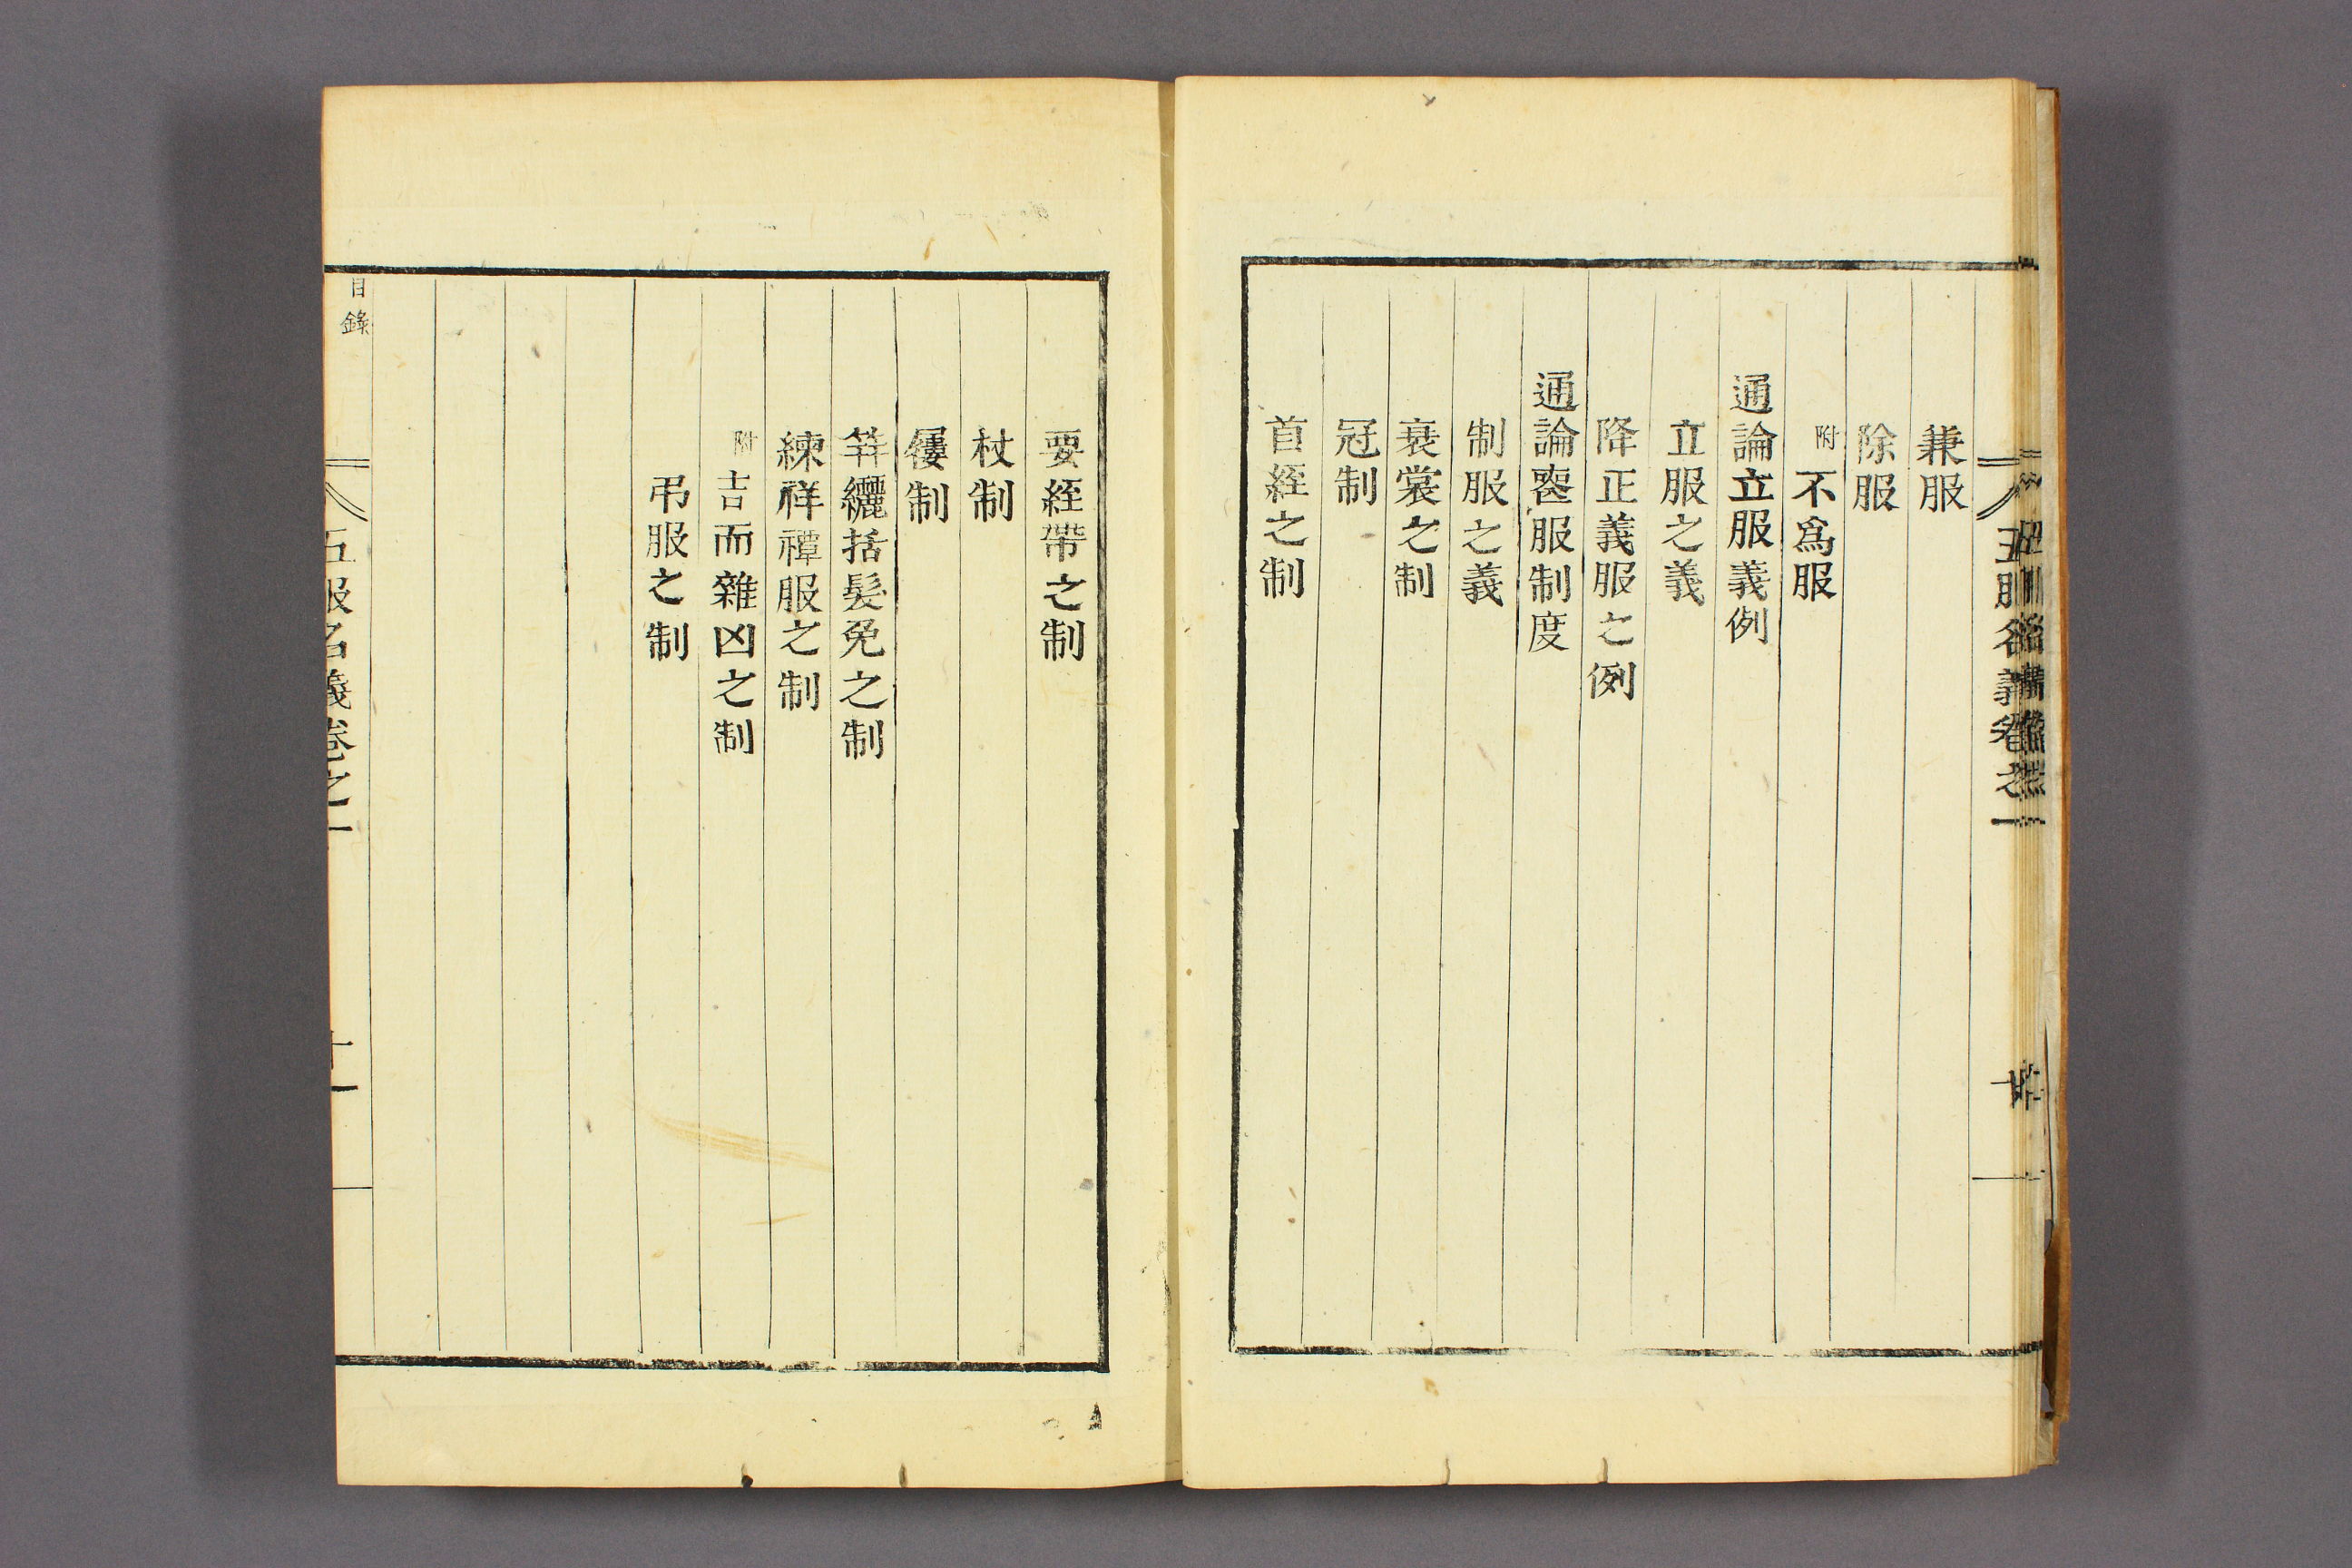 兼服
除服
附不爲服
通論立服義例
立服之義
降正義服之例
通論喪服制度
制服之義
衰裳之制
冠制
首絰之制
要絰帶之制
杖制
屨制
笄纚括髮免之制
練祥禫服之制
附吉而雜凶之制
弔服之制
目錄
五服名義卷之一
十一